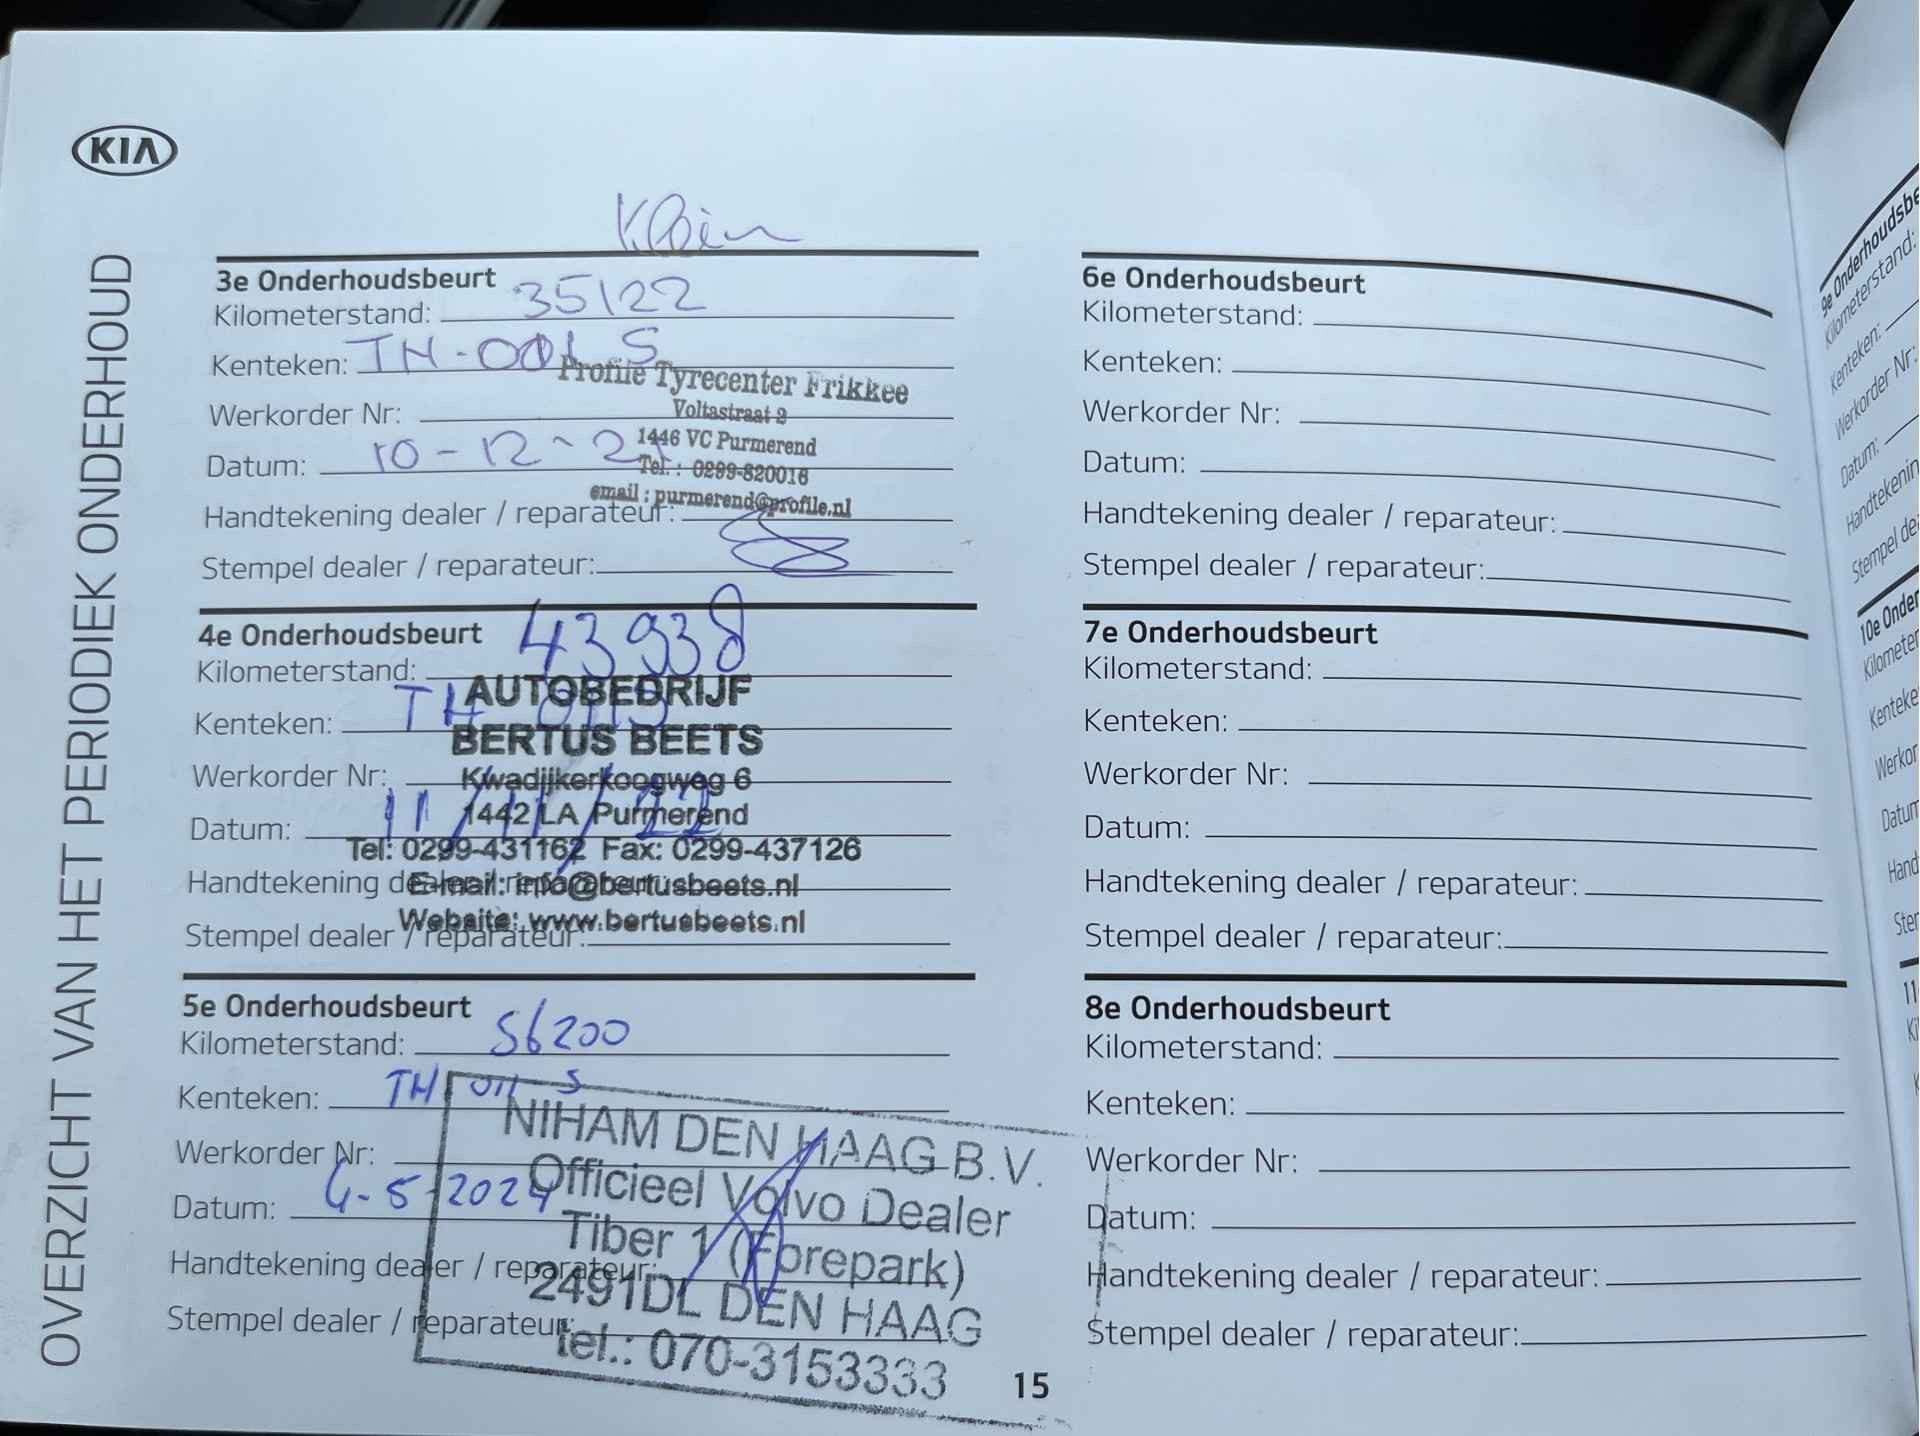 KIA
OVERZICHT VAN HET PERIODIEK ONDERHOUD
Klein
3e Onderhoudsbeurt
Kilometerstand: 35122
Kenteken: TH-011 S
Profile Tyrecenter Frikkee
Werkorder Nr:
Voltastraat 2
1446 VC Purmerend
Datum: 10-12-21
Tel. : 0299-820016
email : purmerend@profile.nl
Handtekening dealer / reparateur:
Stempel dealer / reparateur:
4e Onderhoudsbeurt
Kilometerstand: 43938
AUTOBEDRIJF
Kenteken: TH 011S
BERTUS BEETS
Werkorder Nr:
Kwadijkerkoogweg 6
1442 LA Purmerend
Datum: 11/11/22
Tel: 0299-431162 Fax: 0299-437126
Handtekening dealer / reparateur:
E-mail: info@bertusbeets.nl
Website: www.bertusbeets.nl
Stempel dealer / reparateur:
5e Onderhoudsbeurt
Kilometerstand: 56200
Kenteken: TH 011 S
NIHAM DEN HAAG B.V.
Werkorder Nr:
Officieel Volvo Dealer
Datum: 4-5-2024
Tiber 1 (Forepark)
Handtekening dealer / reparateur:
2491DL DEN HAAG
Stempel dealer / reparateur:
tel.: 070-3153333
15
6e Onderhoudsbeurt
Kilometerstand:
Kenteken:
Werkorder Nr:
Datum:
Handtekening dealer / reparateur:
Stempel dealer / reparateur:
7e Onderhoudsbeurt
Kilometerstand:
Kenteken:
Werkorder Nr:
Datum:
Handtekening dealer / reparateur:
Stempel dealer / reparateur:
8e Onderhoudsbeurt
Kilometerstand:
Kenteken:
Werkorder Nr:
Datum:
Handtekening dealer / reparateur:
Stempel dealer / reparateur:
9e Onderhoudsbe
Kilometerstand:
Kenteken:
Werkorder Nr:
Datum:
Handtekenin
Stempel de
10e Onder
Kilometer
Kenteke
Werkor
Datum
Hand
Ster